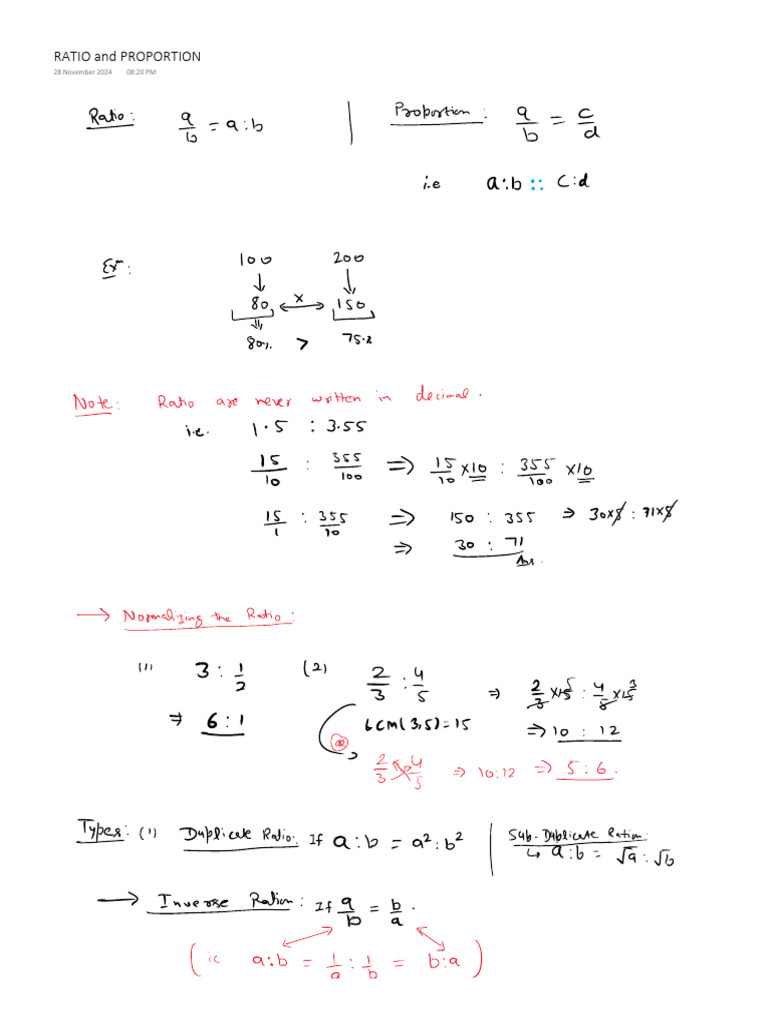 RATIO and PROPORTION
28 November 2024 08:20 PM
Ratio: a/b = a:b | Proportion: a/b = c/d
i.e a:b :: c:d
Ex:
100 200
↓ ↓
80 ←x→ 150
⇓
80% > 75%
Note: Ratio are never written in decimal.
i.e. 1.5 : 3.55
15/10 : 355/100 ⇒ 15/10 x10 : 355/100 x10
15/1 : 355/10 ⇒ 150 : 355 ⇒ 30x5 : 71x5
⇒ 30 : 71
Ans.
→ Normalizing the Ratio:
(1) 3 : 1/2 (2) 2/3 : 4/5 ⇒ 2/3 x15 5 : 4/5 x15 3
⇒ 6 : 1 LCM(3,5)=15 ⇒ 10 : 12
OR 2/3 4/5 ⇒ 10:12 ⇒ 5:6.
Types: (1) Duplicate Ratio: If a:b = a²:b² | Sub-Duplicate Ration:
↳ a:b = √a:√b
→ Inverse Ration: If a/b = b/a.
(ie a:b = 1/a : 1/b = b:a)